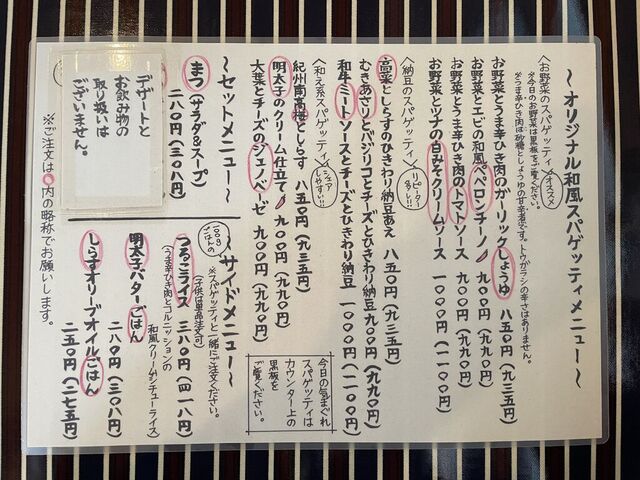 ～オリジナル和風スパゲッティメニュー～
〈お野菜のスパゲッティ〉オススメ
※今日のお野菜は黒板をご覧ください。
※うま辛ひき肉は砂糖としょうゆの甘辛煮です。トウガラシの辛さはありません。
お野菜とうま辛ひき肉のガーリックしょうゆ 八五〇円(九三五円)
お野菜とエビの和風ペペロンチーノ 九〇〇円(九九〇円)
お野菜とうま辛ひき肉のトマトソース 九〇〇円(九九〇円)
お野菜とツナの白みそクリームソース 一〇〇〇円(一一〇〇円)
〈納豆のスパゲッティ〉リピーター多い!!
高菜としらすのひきわり納豆あえ 八五〇円(九三五円)
むきあさりとバジリコとチーズとひきわり納豆 九〇〇円(九九〇円)
和牛ミートソースとチーズとひきわり納豆 一〇〇〇円(一一〇〇円)
〈和え系スパゲッティ〉シェアしやすい!!
紀州南高梅としらす 八五〇円(九三五円)
明太子のクリーム仕立て 九〇〇円(九九〇円)
大葉とチーズのジェノベーゼ 九〇〇円(九九〇円)
今日の気まぐれ
スパゲッティは
カウンター上の
黒板を
ご覧ください。
～セットメニュー～
まつ(サラダ&スープ)
二八〇円(三〇八円)
デザートと
お飲み物の
取り扱いは
ございません。
～サイドメニュー～
100gごはんの
※スパゲッティと一緒にご注文ください。
(子供は単品注文可)
つるこライス 三八〇円(四一八円)
(うま辛ひき肉とコルニッションの
和風クリームシチューライス)
明太子バターごはん
二八〇円(三〇八円)
しらすオリーブオイルごはん
二五〇円(二七五円)
※ご注文は〇内の略称でお願いします。